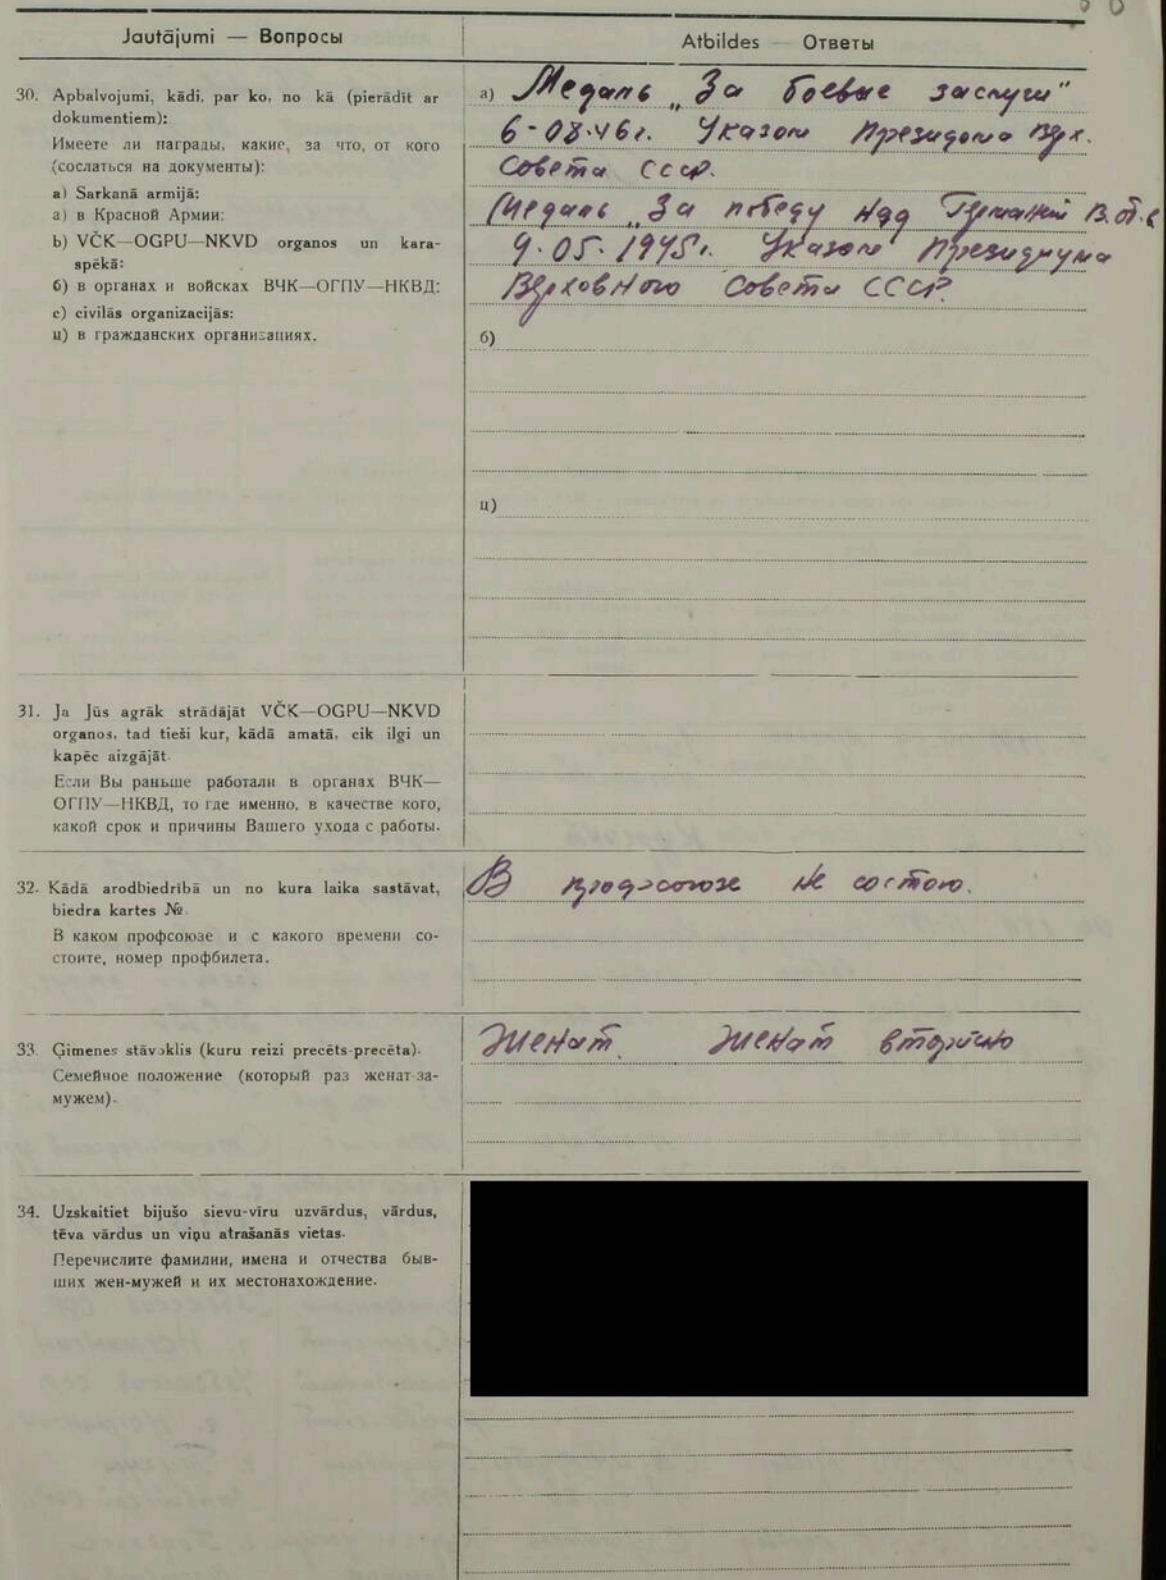 Jautājumi — Вопросы
Atbildes — Ответы
30. Apbalvojumi, kādi, par ko, no kā (pierādīt ar
dokumentiem):
Имеете ли награды, какие, за что, от кого
(сослаться на документы):
a) Sarkanā armijā:
а) в Красной Армии:
b) VČK—OGPU—NKVD organos un kara-
spēkā:
б) в органах и войсках ВЧК—ОГПУ—НКВД:
c) civilās organizacijās:
ц) в гражданских организациях.
а) Медаль „За боевые заслуги"
6-08.46г. Указом Президиума Верх.
Совета СССР.
Медаль „За победу над Германией В.
9.05.1945г. Указом Президиума
Верховного Совета СССР.
б)
ц)
31. Ja Jūs agrāk strādājāt VČK—OGPU—NKVD
organos, tad tieši kur, kādā amatā, cik ilgi un
kapēc aizgājāt.
Если Вы раньше работали в органах ВЧК—
ОГПУ—НКВД, то где именно, в качестве кого,
какой срок и причины Вашего ухода с работы.
32. Kādā arodbiedrībā un no kura laika sastāvat,
biedra kartes №.
В каком профсоюзе и с какого времени со-
стоите, номер профбилета.
В профсоюзе не состою.
33. Ģimenes stāvoklis (kuru reizi precēts-precēta).
Семейное положение (который раз женат-за-
мужем).
Женат. Женат вторично
34. Uzskaitiet bijušo sievu-vīru uzvārdus, vārdus,
tēva vārdus un viņu atrašanās vietas.
Перечислите фамилии, имена и отчества быв-
ших жен-мужей и их местонахождение.